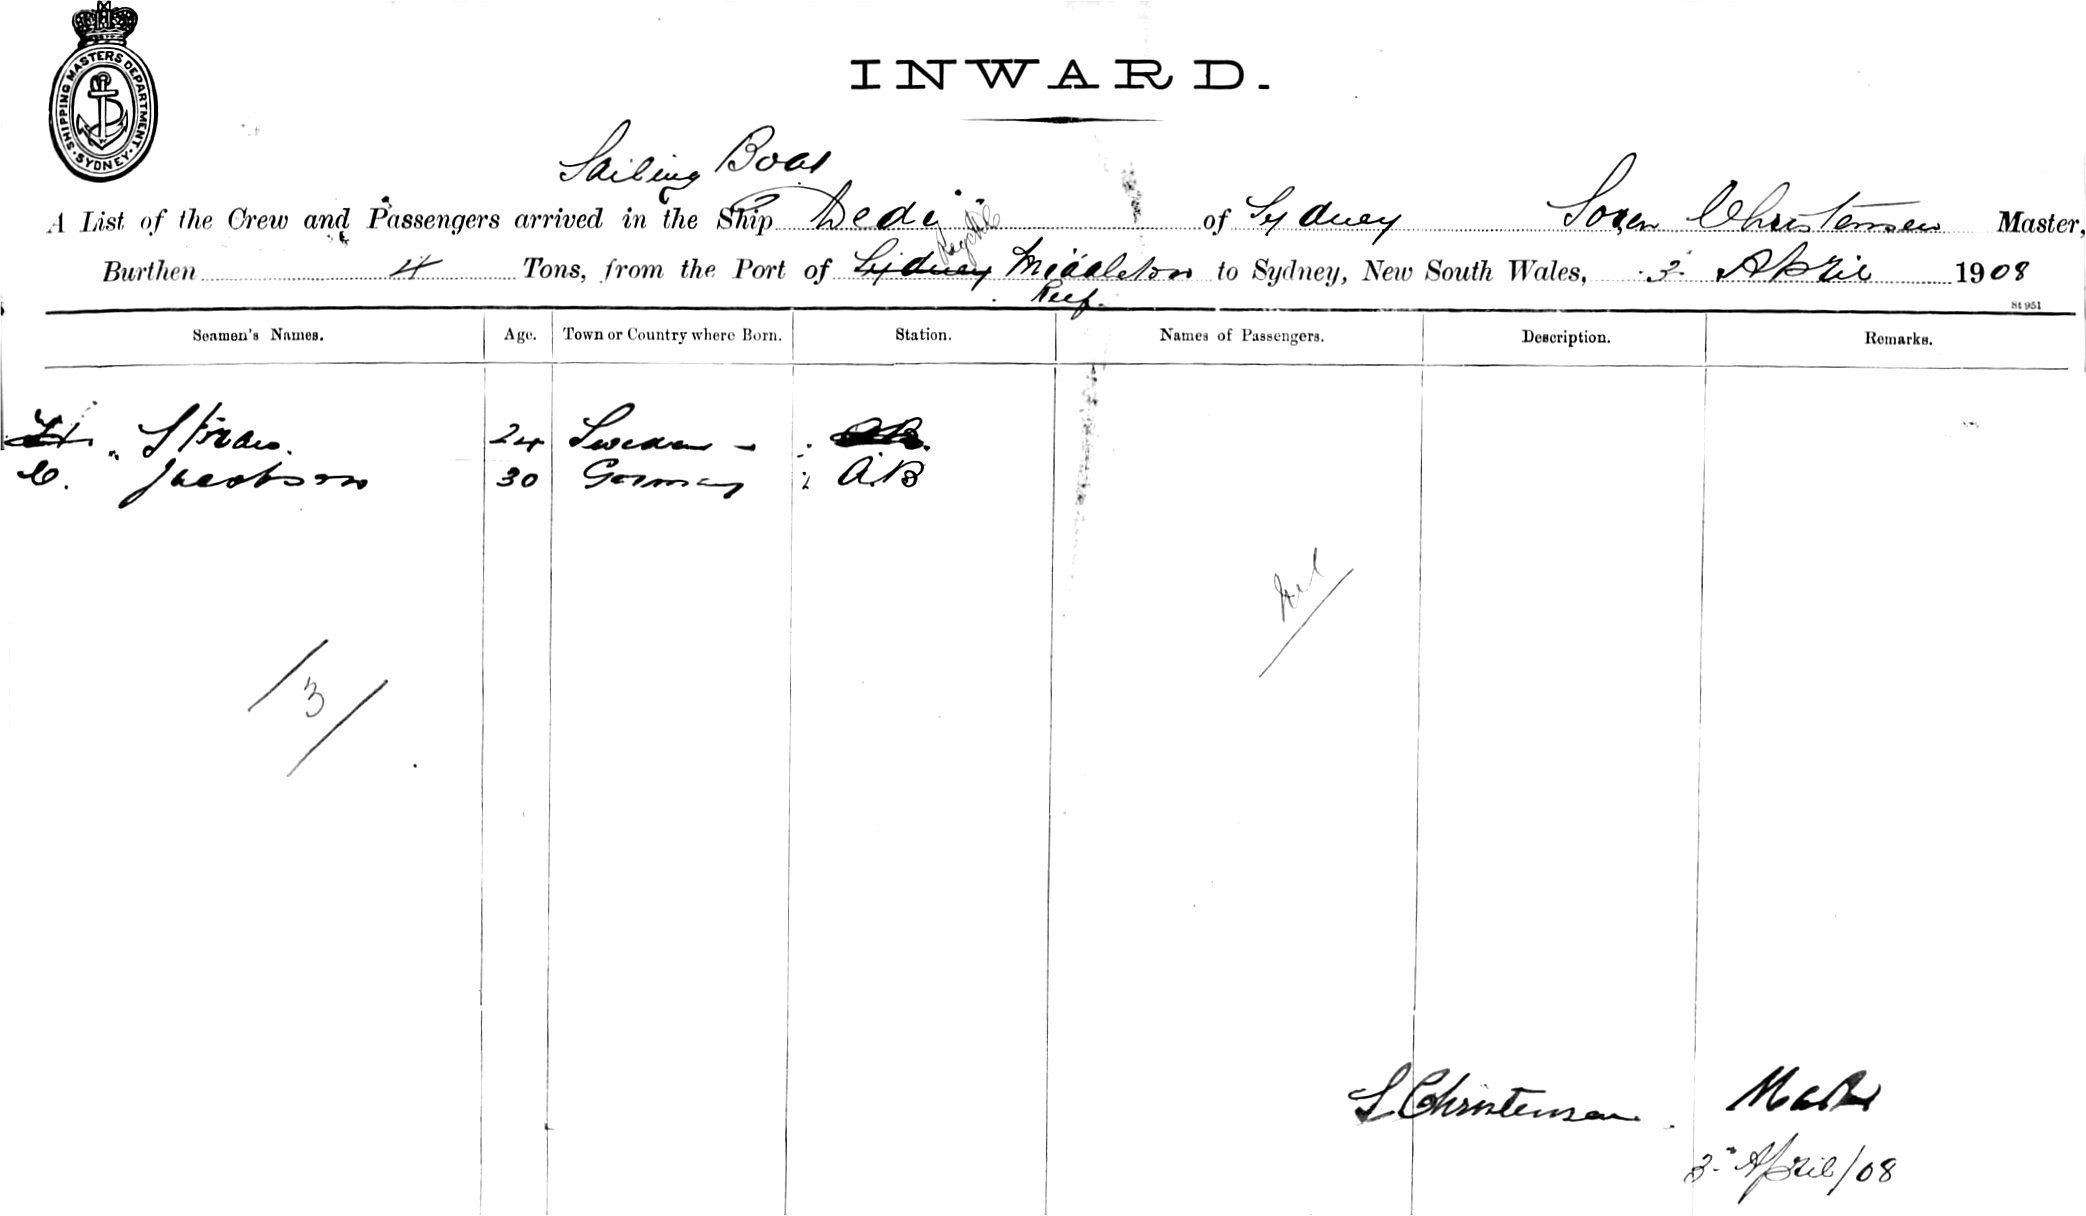 SHIPPING MASTERS DEPARTMENT. SYDNEY
INWARD.
Sailing Boat
A List of the Crew and Passengers arrived in the Ship "Dedi" of Sydney Soren Christensen Master,
Burthen 4 Tons, from the Port of Sydney Middleton to Sydney, New South Wales, 3 April 1908
Reef.
St 951
Seamen's Names. Age. Town or Country where Born. Station. Names of Passengers. Description. Remarks.
24 Sweden A.B.
C. Jacobson 30 Germany A.B
Nil
3
S Christensen Master
3 April/08